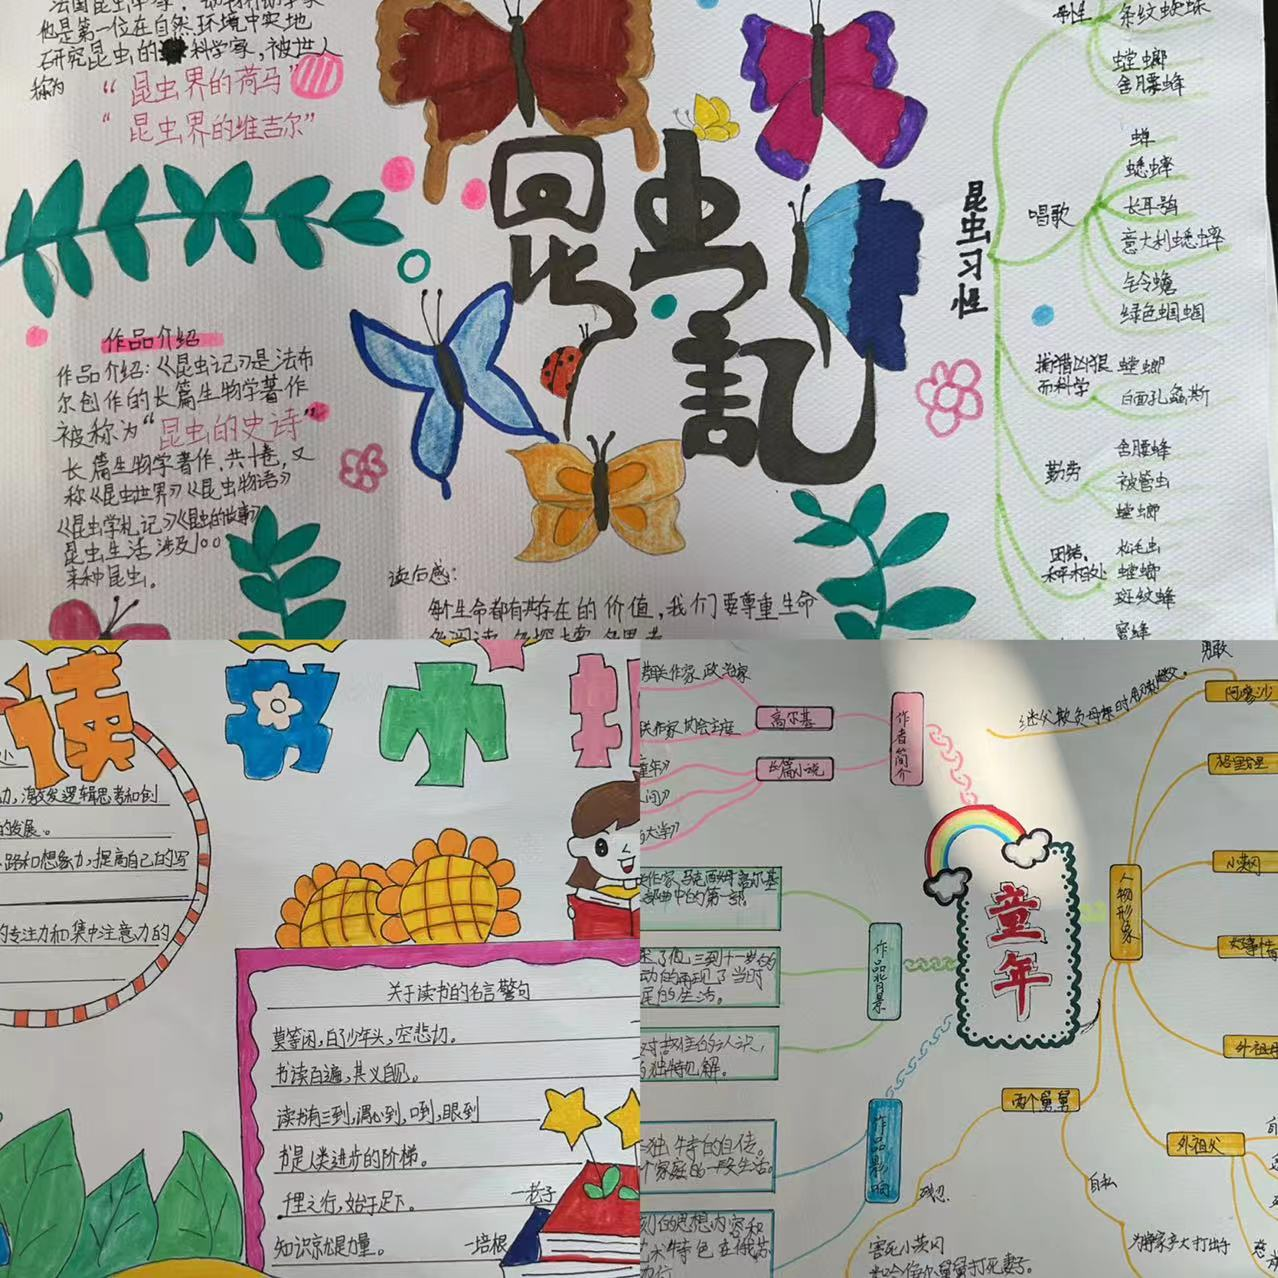 他是第一位在自然环境中实地
研究昆虫的科学家,被世人
称为
“昆虫界的荷马”
“昆虫界的维吉尔”
作品介绍
作品介绍:《昆虫记》是法布
尔创作的长篇生物学著作
被称为“昆虫的史诗”
长篇生物学著作,共十卷,又
称《昆虫世界》《昆虫物语》
《昆虫学札记》《昆虫的故事》
昆虫生活涉及100
来种昆虫。
昆虫記
读后感:
每个生命都有其存在的价值,我们要尊重生命
昆虫习性
条纹蜘蛛
螳螂
舍腰蜂
唱歌
蝉
蟋蟀
长耳鸮
意大利蟋蟀
铃蟾
绿色蝈蝈
捕猎凶狠
而科学
螳螂
白面孔螽斯
勤劳
舍腰蜂
被管虫
螳螂
团结、
和平相处
松毛虫
螳螂
斑纹蜂
蜜蜂
读书小报
力,激发逻辑思考和创
的发展。
路和想象力,提高自己的写
的专注力和集中注意力的
关于读书的名言警句
莫等闲,白了少年头,空悲切。
书读百遍,其义自见。
读书有三到,谓心到,口到,眼到
书是人类进步的阶梯。
千里之行,始于足下。 —老子
知识就是力量。 —培根
童年
作者简介
高尔基
长篇小说
联作家 政治家
关作家 协会主席
童年》
人间》
大学》
作品背景
作家,马克西姆高尔基
部曲中的第一部
了他三到十一岁的
动的再现了当时
层的生活。
对苦难的认识,
独特见解。
作品影响
独特的自传。
个家庭的一段生活。
刻的思想内容和
术特色在俄苏
人物形象
勇敢
阿廖沙
继父欺负母亲时用刺
格里戈里
小茨冈
好事情
外祖母
外祖父
两个舅舅
残忍
自私
害死小茨冈
为争家产大打出手